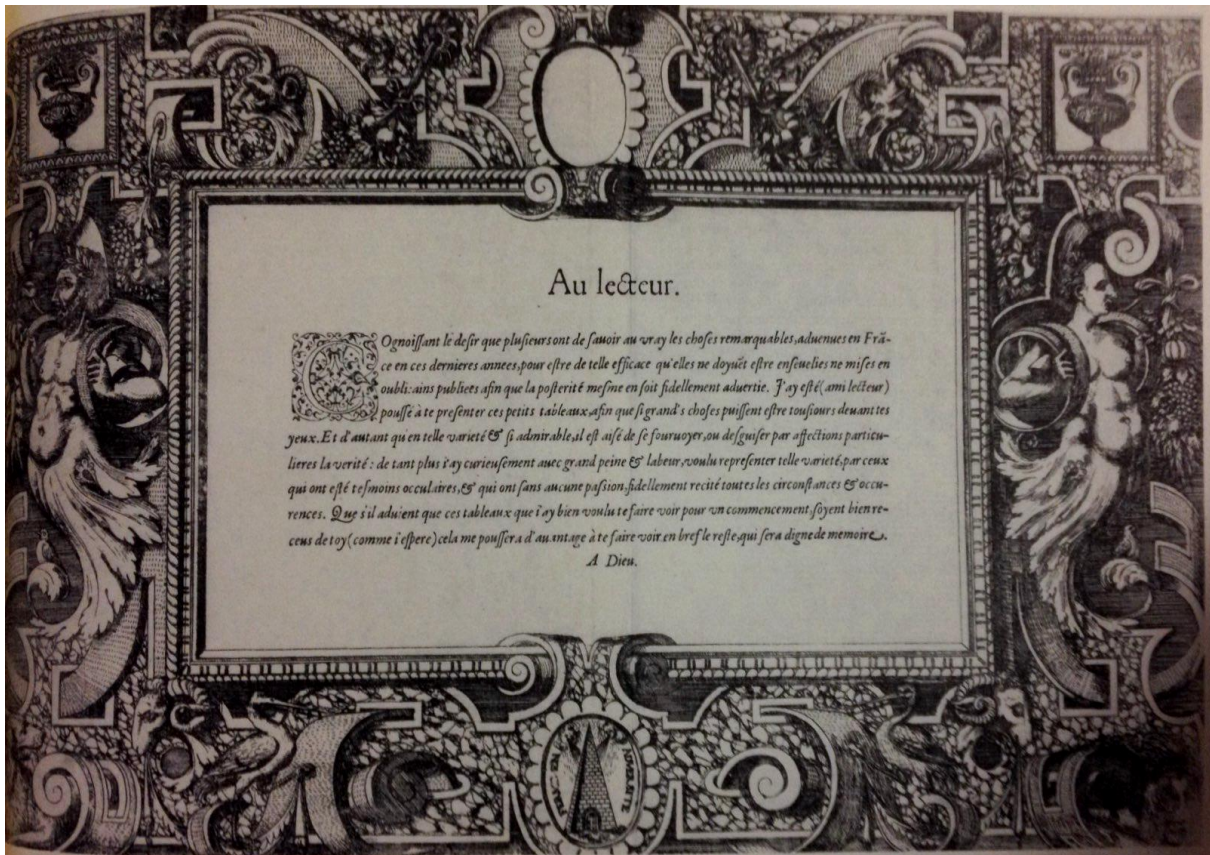 Au lecteur.
COgnoiſſant le deſir que pluſieurs ont de ſauoir au vray les choſes remarquables, aduenues en Frã-
ce en ces dernieres annees, pour eſtre de telle efficace qu'elles ne doyuẽt eſtre enſeuelies ne miſes en
oubli: ains publiees afin que la poſterité meſme en ſoit fidellement aduertie. J'ay eſté (ami lecteur)
pouſſé à te preſenter ces petits tableaux, afin que ſi grand's choſes puiſſent eſtre touſiours deuant tes
yeux. Et d'autant qu'en telle varieté & ſi admirable, il eſt aiſé de ſe fouruoyer, ou deſguiſer par affections particu-
lieres la verité: de tant plus i'ay curieuſement auec grand peine & labeur, voulu repreſenter telle varieté, par ceux
qui ont eſté teſmoins occulaires, & qui ont ſans aucune paſsion, fidellement recité toutes les circonſtances & occu-
rences. Que s'il aduient que ces tableaux que i'ay bien voulu te faire voir pour vn commencement, ſoyent bien re-
ceus de toy (comme i'eſpere) cela me pouſſera d'auantage à te faire voir en bref le reſte, qui ſera digne de memoire.
A Dieu.